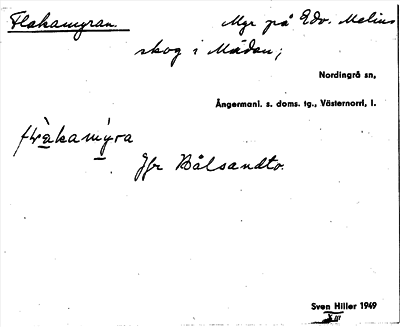 Flakamyran. Myr på Edv. Melins
skog i Mädan;
Nordingrå sn,
Ångermanl. s. doms. tg., Västernorrl. l.
Jfr Bålsandto.
Sven Hiller 1949
XIII